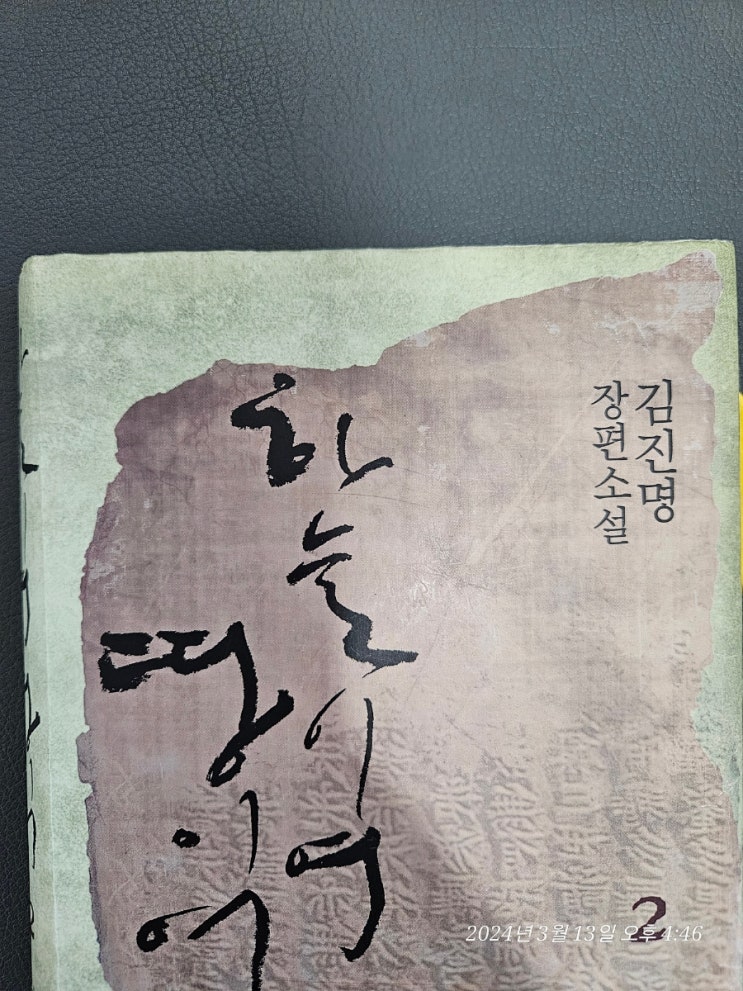 김진명
장편소설
하늘이여
땅이여
2
2024년 3월 13일 오후 4:46